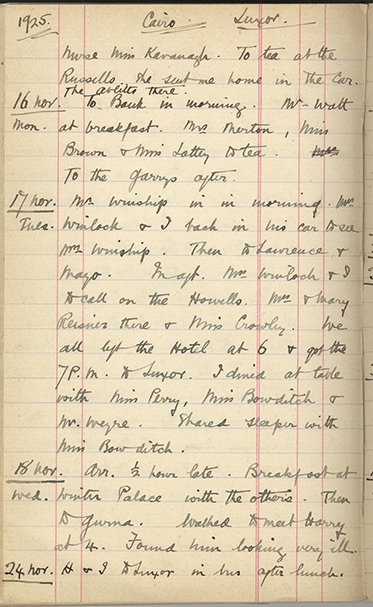 1925. Cairo. Luxor.
Nurse Miss Kavanagh. To tea at the
Russells, she sent me home in the Car.
The ablitts there.
16 Nov. To Bank in morning. Mr Watt
Mon. at breakfast. Mrs Merton, Miss
Brown & Miss Lattey to tea.
To the Garrys after.
17 Nov. Mr Winship in in morning. Mrs
Tues. Winlock & I back in his car to see
Mrs Winship. Then to Lawrence &
Mayo. In aft. Mrs Winlock & I
to call on the Howells. Mrs & Mary
Reisner there & Miss Crowley. We
all left the Hotel at 6 & got the
7 P.M. to Luxor. I dined at table
with Miss Perry, Miss Bowditch &
Mr. Weyre. Shared sleeper with
Miss Bowditch.
18 Nov. Arr. ½ hour late. Breakfast at
Wed. Winter Palace with the others. Then
to Gurna. Walked to meet Harry
at 4. Found him looking very ill.
24 Nov. H & I to Luxor in bus after lunch.